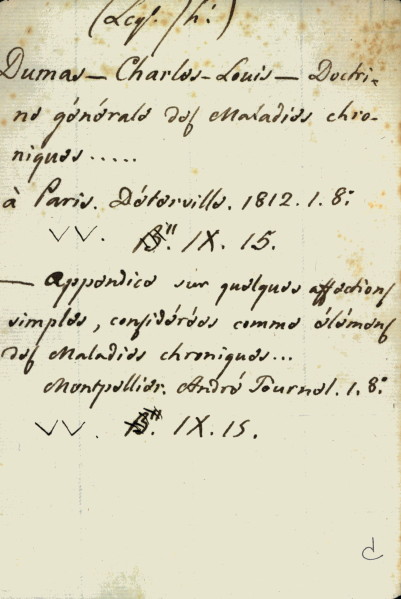 (Legs. Ph.)
Dumas — Charles-Louis — Doctri-
ne générale des Maladies chro-
niques.....
à Paris. Déterville. 1812. 1. 8º
VV. IX. 15.
— Appendice sur quelques affections
simples, considérées comme élémens
des Maladies chroniques...
Montpellier. André Tournel. 1. 8º
VV. IX. 15.
d